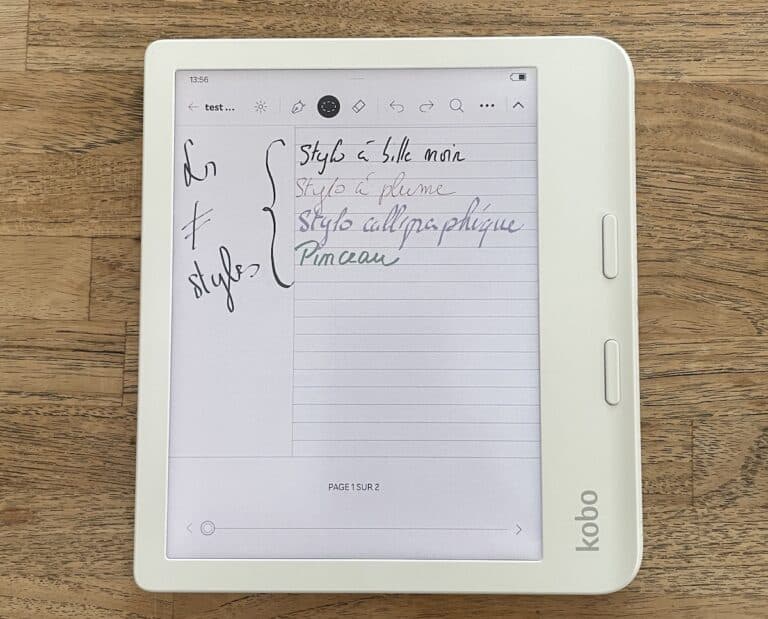 13:56
test ...
Les
≠
styles
Stylo à bille noir
Stylo à plume
Stylo calligraphique
Pinceau
PAGE 1 SUR 2
kobo